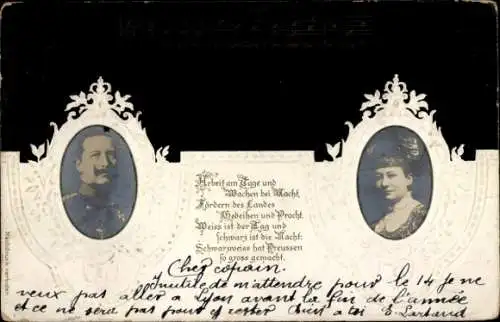 Arbeit am Tage und
Wachen bei Nacht,
Fördern des Landes
Gedeihen und Pracht.
Weiss ist der Tag und
schwarz ist die Nacht:
Schwarzweiss hat Preussen
so gross gemacht.
Nachdruck verboten
Cher copain.
Inutile de m'attendre pour le 14 je ne
veux pas aller a Lyon avant la fin de l'année
et ce ne sera pas pour y rester